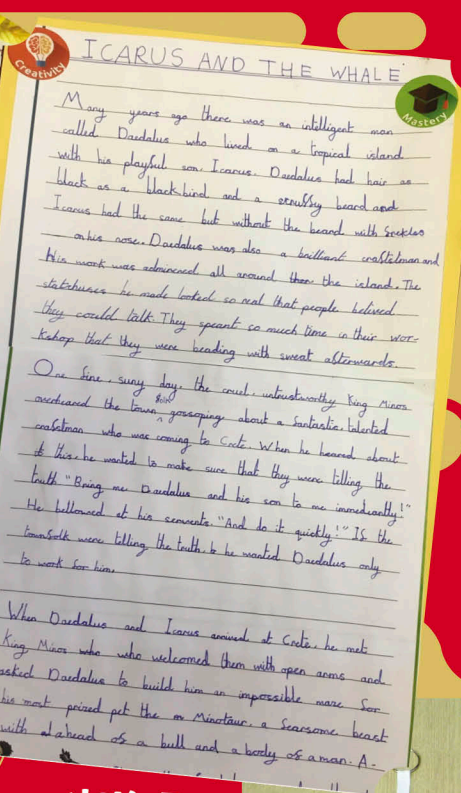 Creativity
ICARUS AND THE WHALE
Mastery
Many years ago there was an intelligent man
called Daedalus who lived on a tropical island
with his playful son, Icarus. Daedalus had hair as
black as a blackbird and a scruffy beard and
Icarus had the same but without the beard with freckles
on his nose. Daedalus was also a brilliant craftsman and
His work was admired all around the island. The
he made looked so real that people belived
they could talk. They speant so much time in their wor-
kshop that they were beading with sweat afterwards.
One fine, suny day, the cruel, untrustworthy King Minos
overheared the town folk gossoping about a fantastic, talented
crafstman who was coming to Crete. When he heared about
this, he wanted to make sure that they were telling the
truth. "Bring me Daedalus and his son to me immediantly!"
He bellowed at his servents. "And do it quickly!" If the
townsfolk were telling the truth, he wanted Daedalus only
to work for him.
When Daedalus and Icarus arrived at Crete, he met
King Minos who who welcomed them with open arms and
asked Daedalus to build him an impossible maze for
his most prized pet the Minotaur, a fearsome beast
with a head of a bull and a body of a man. A-